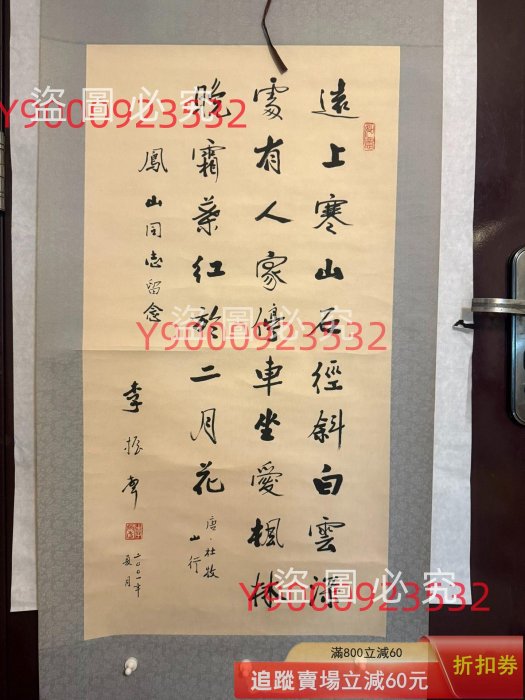 遠上寒山石徑斜白雲深
處有人家停車坐愛楓林
晚霜葉紅於二月花
唐·杜牧
山行
鳳山同志留念
李振
二〇〇一年
夏月
盜圖必究
Y9000923332
盜圖必究
Y9000923332
盜圖必究
Y9000923332
滿800立減60
追蹤賣場立減60元
折扣券